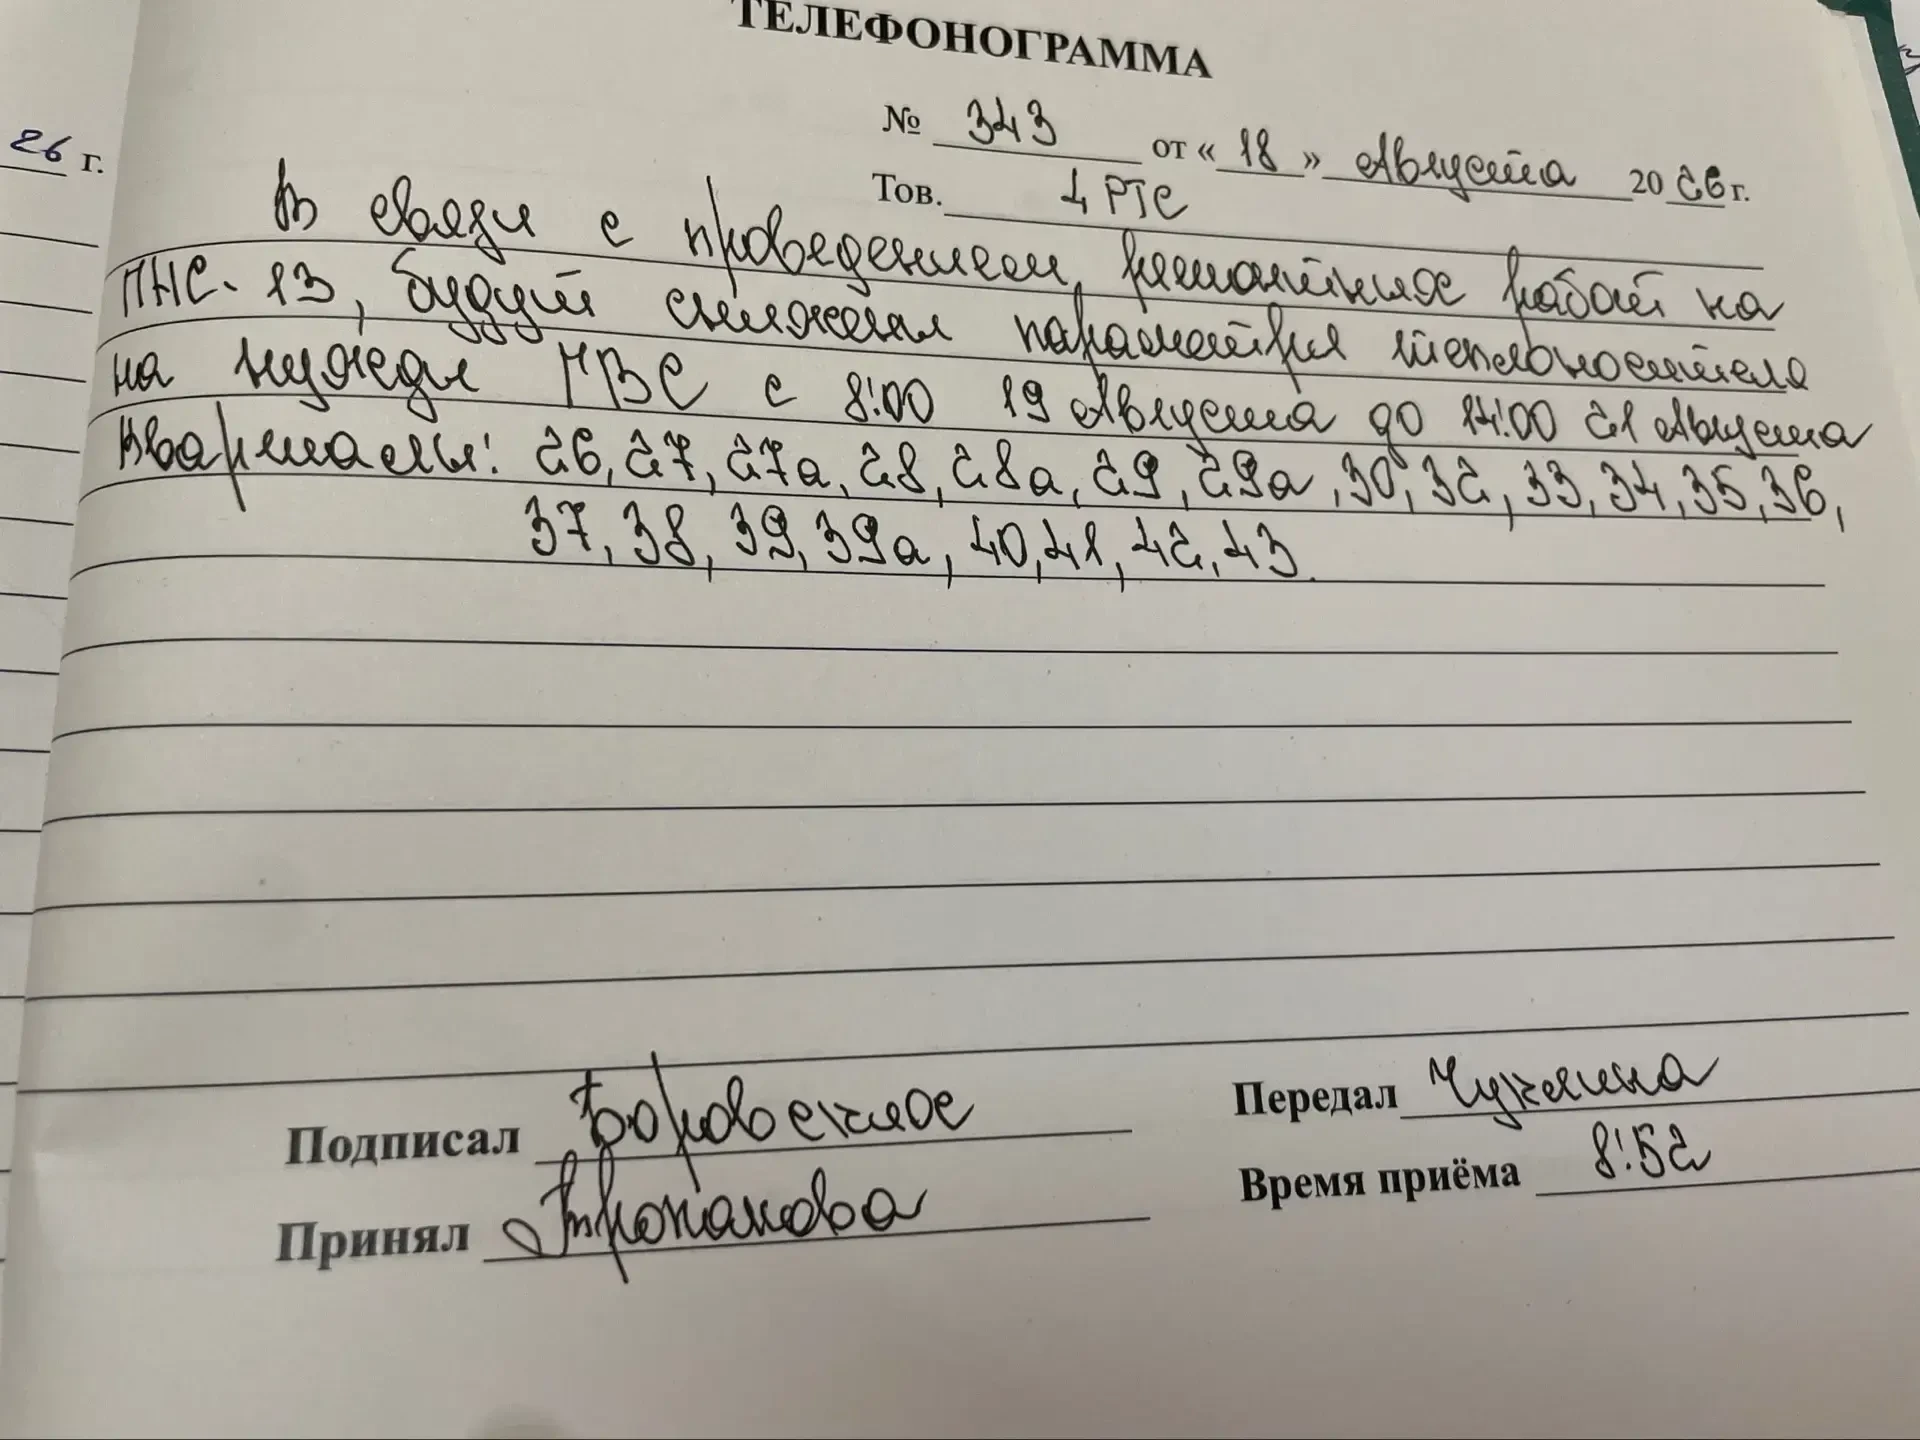 ТЕЛЕФОНОГРАММА
26 г.
№ 343 от «18» Августа 2026 г.
Тов. 4 РТС
В связи с проведением ремонтных работ на
ПНС-13, будут снижены параметры теплоносителя
на нужды ГВС с 8:00 19 Августа до 17:00 21 Августа
Кварталы: 26, 27, 27а, 28, 28а, 29, 29а, 30, 32, 33, 34, 35, 36,
37, 38, 39, 39а, 40, 41, 42, 43.
Подписал Боровских
Передал
Принял
Время приёма 8:52